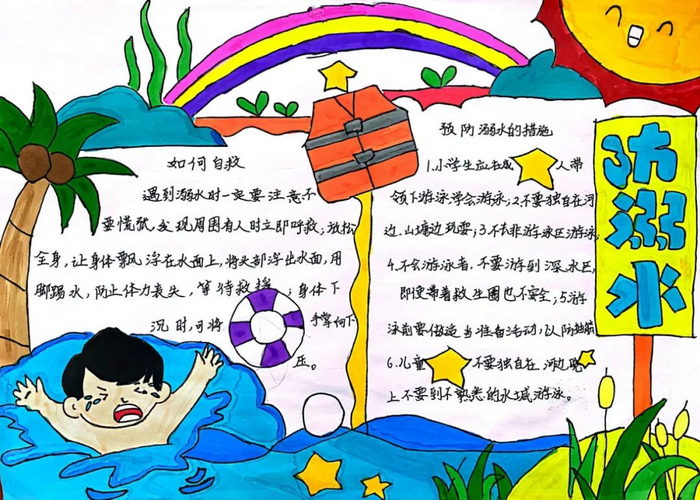 如何自救
遇到溺水时一定要注意不
要慌张,发现周围有人时立即呼救,放松
全身,让身体飘浮在水面上,将头部浮出水面,用
脚踢水,防止体力丧失,等待救援;身体下
沉时,可将手掌向下
压。
预防溺水的措施
1.小学生应在成人带
领下游泳学会游泳;2.不要独自在河
边、山塘边玩耍;3.不去非游泳区游泳;
4.不会游泳者,不要游到深水区,
即使带着救生圈也不安全;5.游
泳前要做适当准备活动,以防抽筋
6.儿童不要独自在河边
上不要到不熟悉的水域游泳。
防溺水